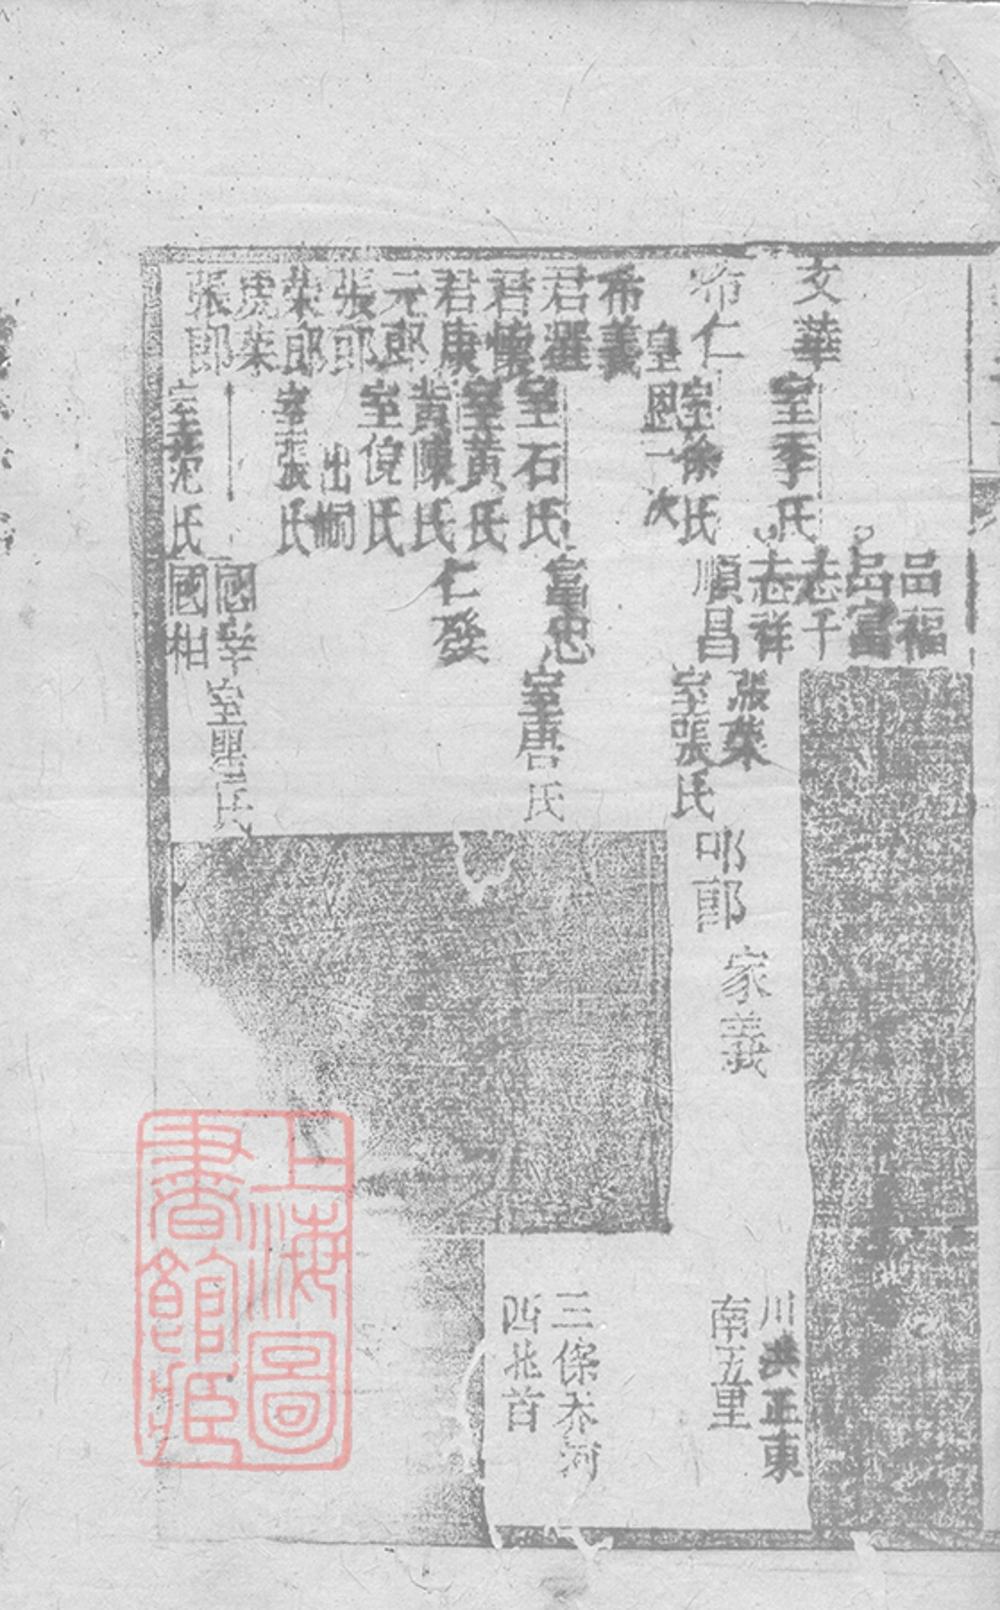 品福
品富
文華
室李氏
志千
志祥
希仁
室徐氏
順昌
張榮
室張氏
叩郎
家義
川洪正東
南五里
皇恩一次
希義
君選
室石氏
富忠
室唐氏
三保乔河
西北首
君懷
室黃氏
君康
黃陳氏
仁發
元郎
室倪氏
張郎
出嗣
榮郎
室張氏
國宰
室瞿氏
張郎
室范氏
國相
上海圖
書館藏